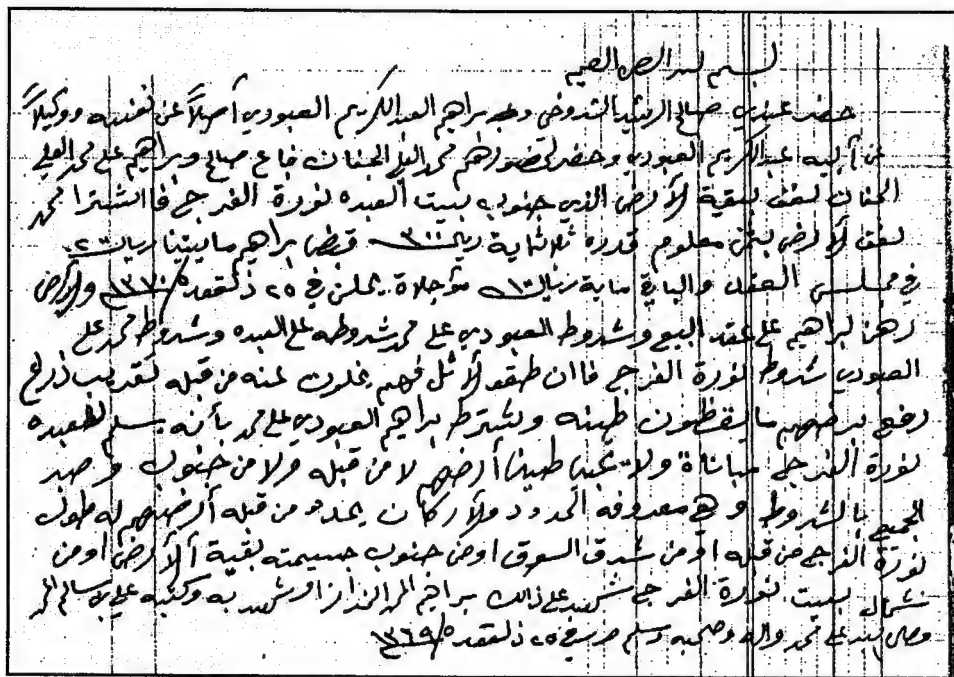 بسم الله الرحمن الرحيم
حضر عندي صالح الرشيد الشدوخي وبراهيم العبدالكريم العبودي أصلاً عن نفسه ووكيلاً
عن أبيه عبدالكريم العبودي وحضر لحضورهم محمد العلي الجنان فباع صالح وبراهيم على محمد العلي
الجنان بقية الأرض الذي جنوب بيت العبده نورة الفرجي فاالشترا محمد
الأرض بثمن معلوم قدره ثلاثماية ريال ٣٠٠ قبض براهيم مايتينا ريال ٢٠٠
في مجلس العقد والباقي ماية ريال ١٠٠ مؤجلاة يحلن في ٢٥ ذلقعده ١٣٧٠ والأرض
رهن لبراهيم على عقد البيع وشروط العبودي على محمد شروطه على العبده وشروط محمد على
العبودي شروط نورة الفرجي فاان طبقو الأثل فهم يخلون عنه من قبله تقريب ذراع
رفع برضهم ما ينقضون طينه ويشترط براهيم العبودي على محمد بأنه يسلم للعبده
نورة الفرجي مباناة ولا طينا أرضهم لا من قبله ولا من جنوب وصبر
الجميع بالشروط وهي معروفه الحدود ولأركان يحدد من قبله أرضهم له طول
نورة الفرجي من قبله اومن شرق السوق اومن جنوب بقية ألأرض اومن
شمال بيت نورة الفرجي شهد على ذالك براهيم الحمد البزاز اوشهد به وكتبه علي السالم المحمد
وصلى الله على محمد واله وصحبه وسلم في ٢٥ ذلقعده ١٣٦٩